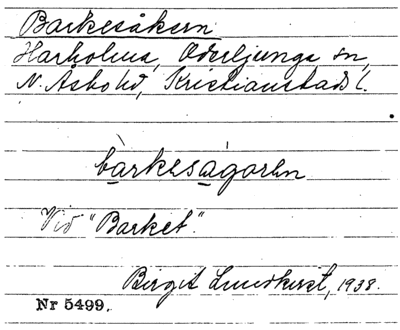 Barkesåkern
Harholma, Oderljunga sn,
N. Åsbo hd, Kristianstads l.
barkesagorən
Vid "Barket".
Birgit Lundkvist, 1938.
Nr 5499.